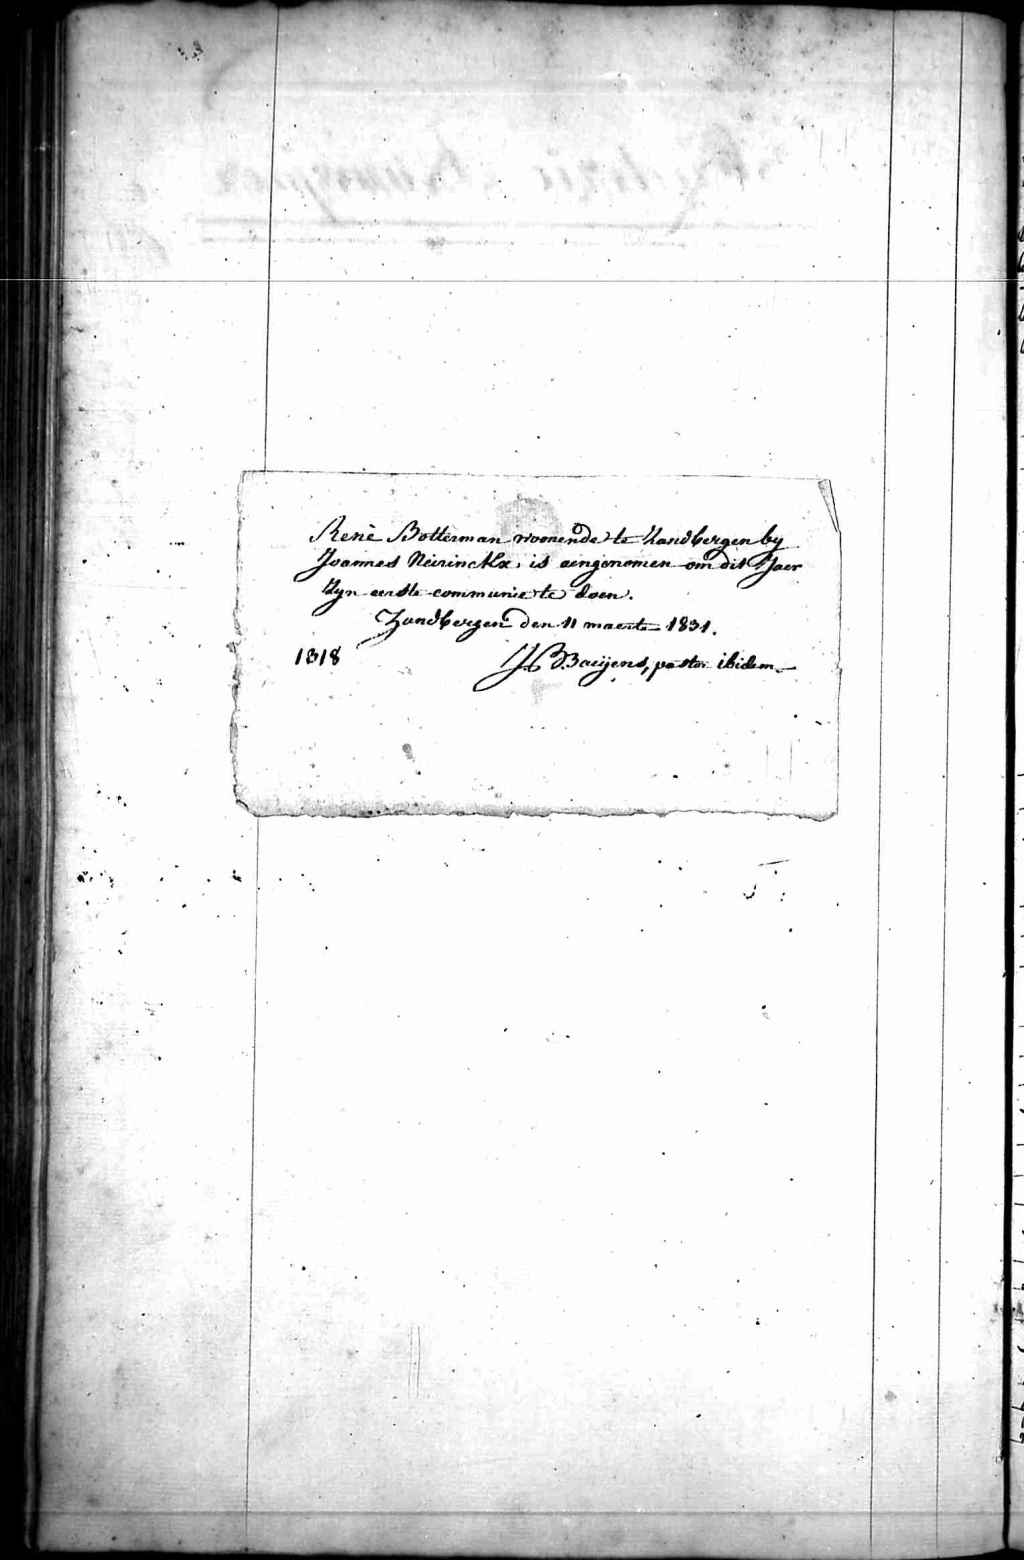 Renè Botterman woonende te Zandbergen by
Joannes Neirinckx, is aengenomen om dit Jaer
Zyn eerste communie te doen.
Zandbergen den 11 maerte 1831.
1818
JB Baeÿens, pastor ibidem